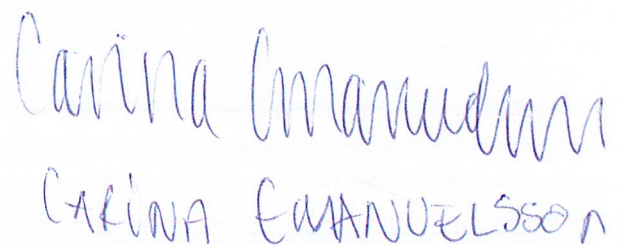 Carina Emanuelsson
CARINA EMANUELSSON